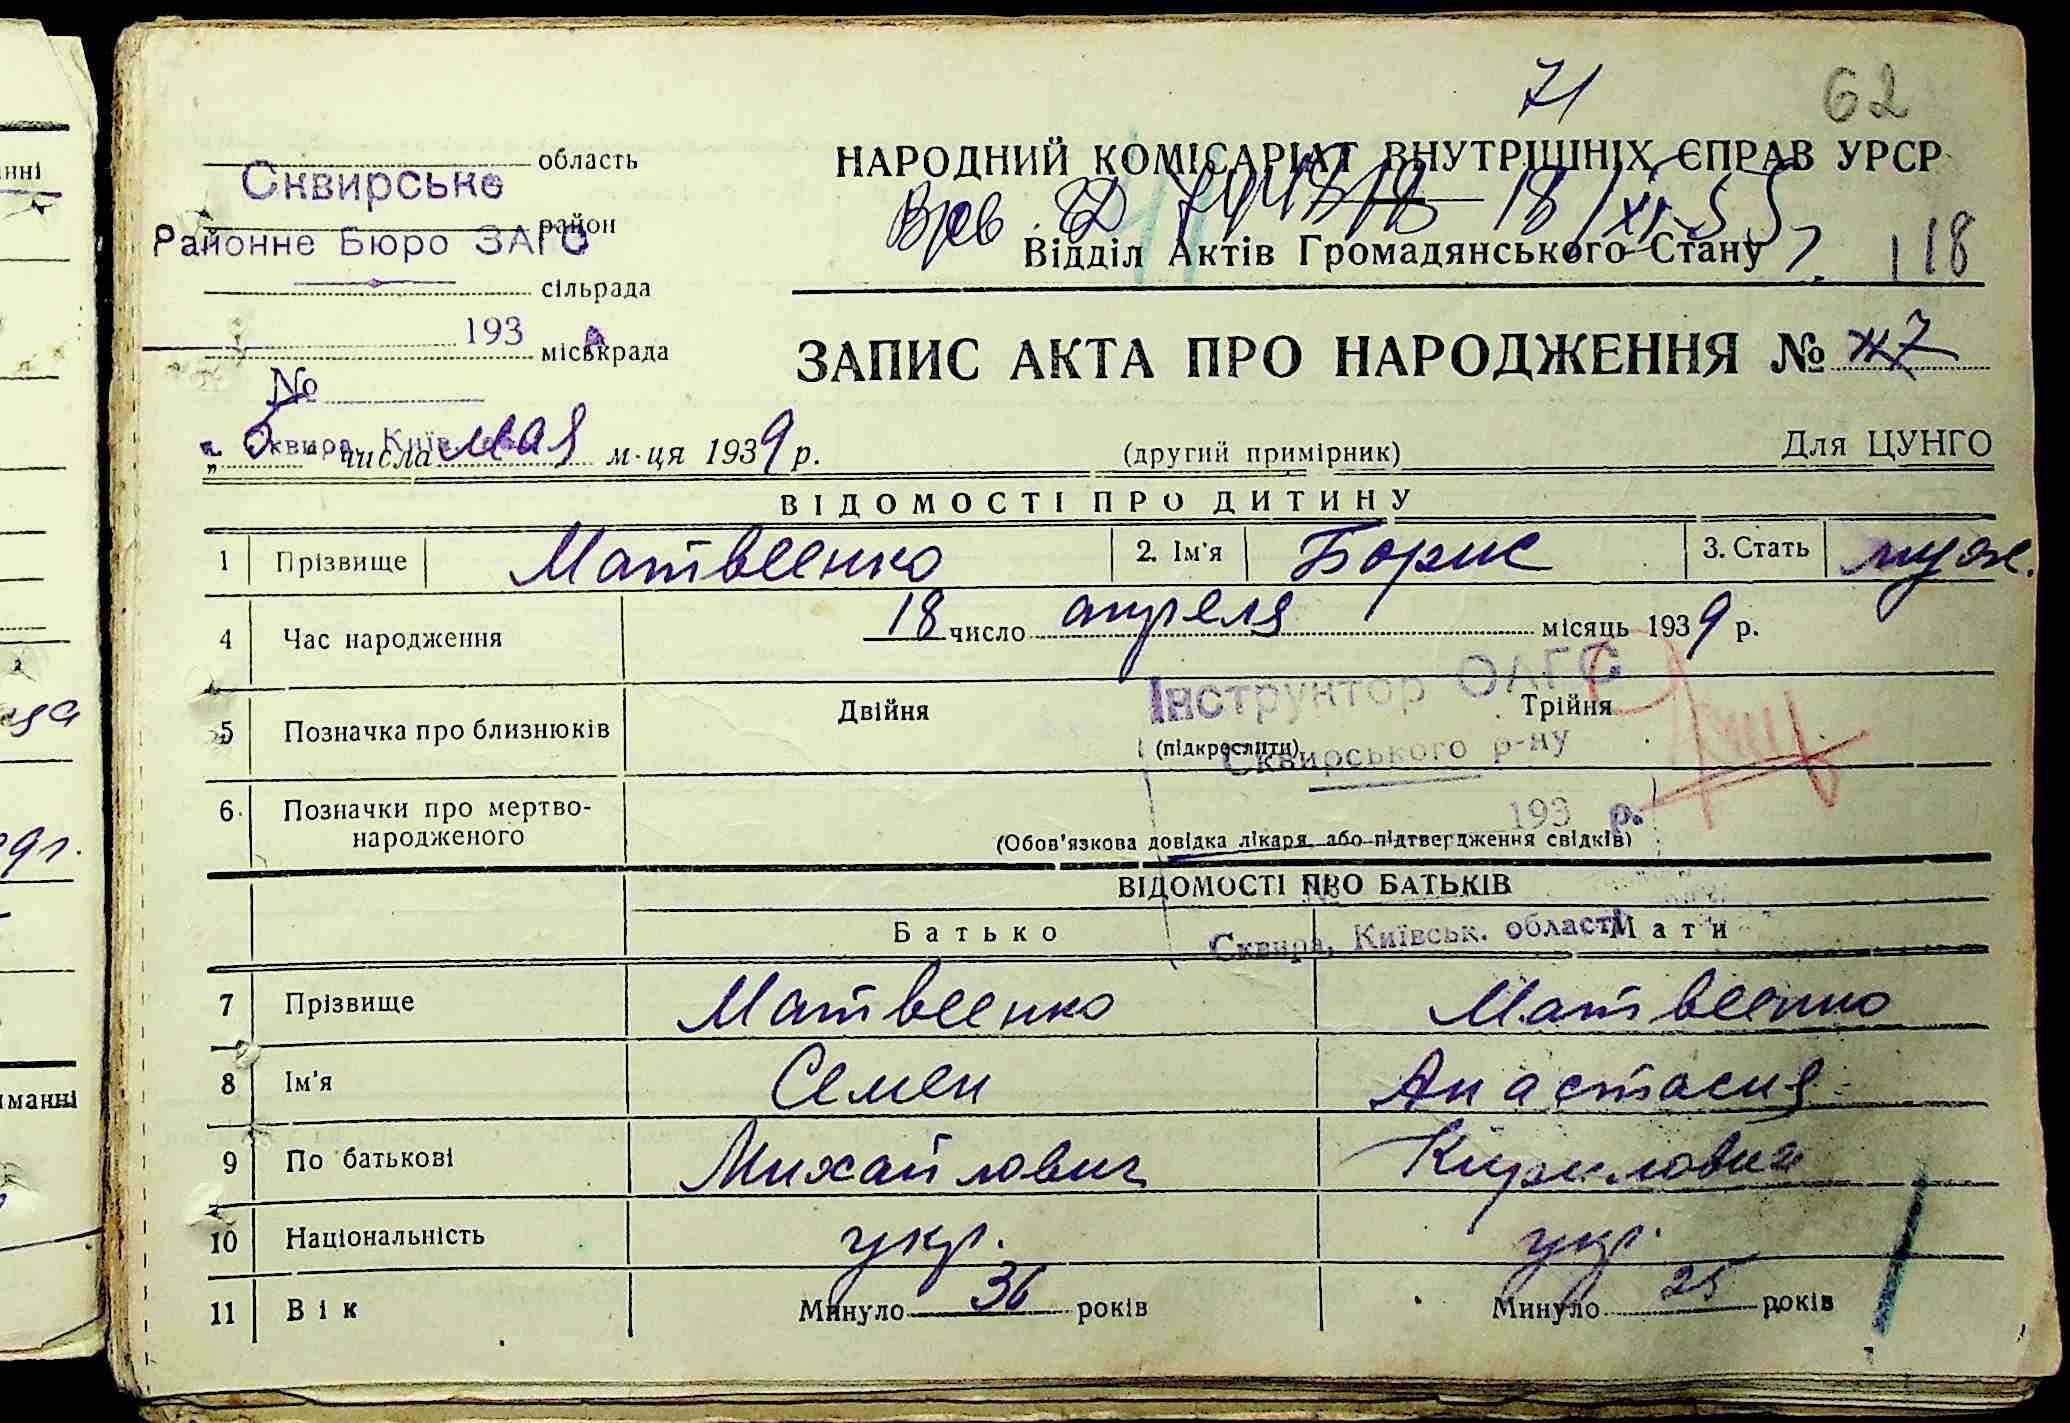 71
62
область
Сквирське
район
Районне Бюро ЗАГС
сільрада
193
міськрада
№
м. Сквира, Київ
НАРОДНИЙ КОМІСАРІАТ ВНУТРІШНІХ СПРАВ УРСР
18/XI-55
Відділ Актів Громадянського Стану
118
ЗАПИС АКТА ПРО НАРОДЖЕННЯ №
„5“ числа мая м-ця 1939 р.
(другий примірник)
Для ЦУНГО
ВІДОМОСТІ ПРО ДИТИНУ
1 Прізвище Матвеенко 2. Ім'я Борис 3. Стать муж.
4 Час народження 18 число апреля місяць 1939 р.
Інструктор ОАГС
5 Позначка про близнюків Двійня Трійня
(підкреслити)
Сквирського р-ну
193 р.
6. Позначки про мертво-
народженого
(Обов'язкова довідка лікаря або підтвердження свідків)
ВІДОМОСТІ ПРО БАТЬКІВ
Батько Мати
Сквира, Київськ. області
7 Прізвище Матвеенко Матвеенко
8 Ім'я Семен Анастасия
9 По батькові Михайлович Кириловна
10 Національність укр. укр.
11 Вік Минуло 36 років Минуло 25 років
нні
9 г.
иманні